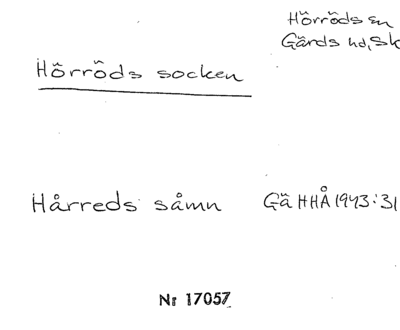 Hörröds sn
Gärds hd, Sk
Hörröds socken
Hårreds såmn Gä HHÅ 1943:31
Nr 17057